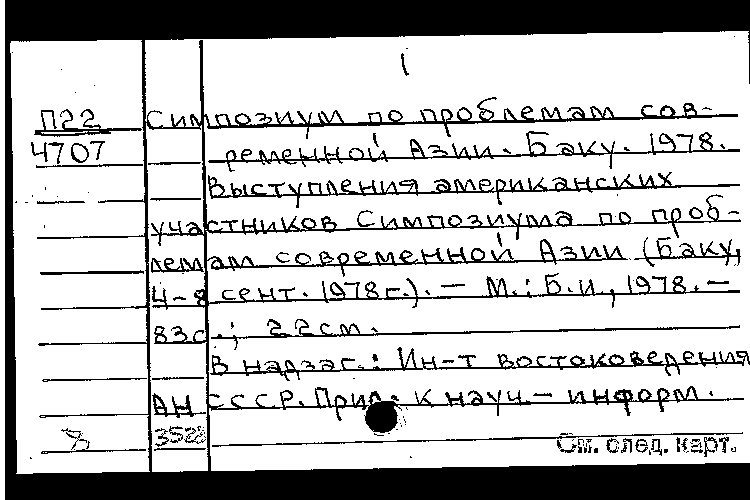 1
П22 Симпозиум по проблемам сов-
4707 ременной Азии. Баку. 1978.
Выступления американских
участников Симпозиума по проб-
лемам современной Азии (Баку,
4-8 сент. 1978г.). — М.: Б.и, 1978. —
83с.; 22см.
В надзаг.: Ин-т востоковедения
АН СССР. Прил. к науч.- информ.
3528
См. след. карт.